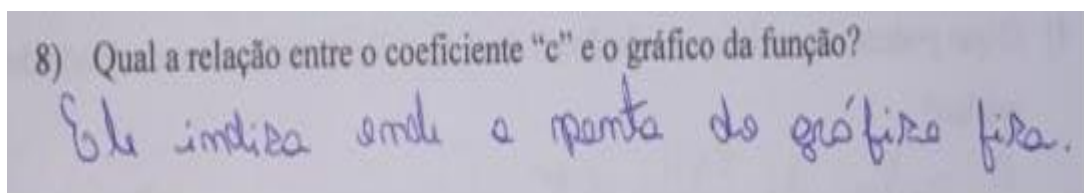 8) Qual a relação entre o coeficiente “c” e o gráfico da função?
Ele indica onde a ponta do gráfico fica.